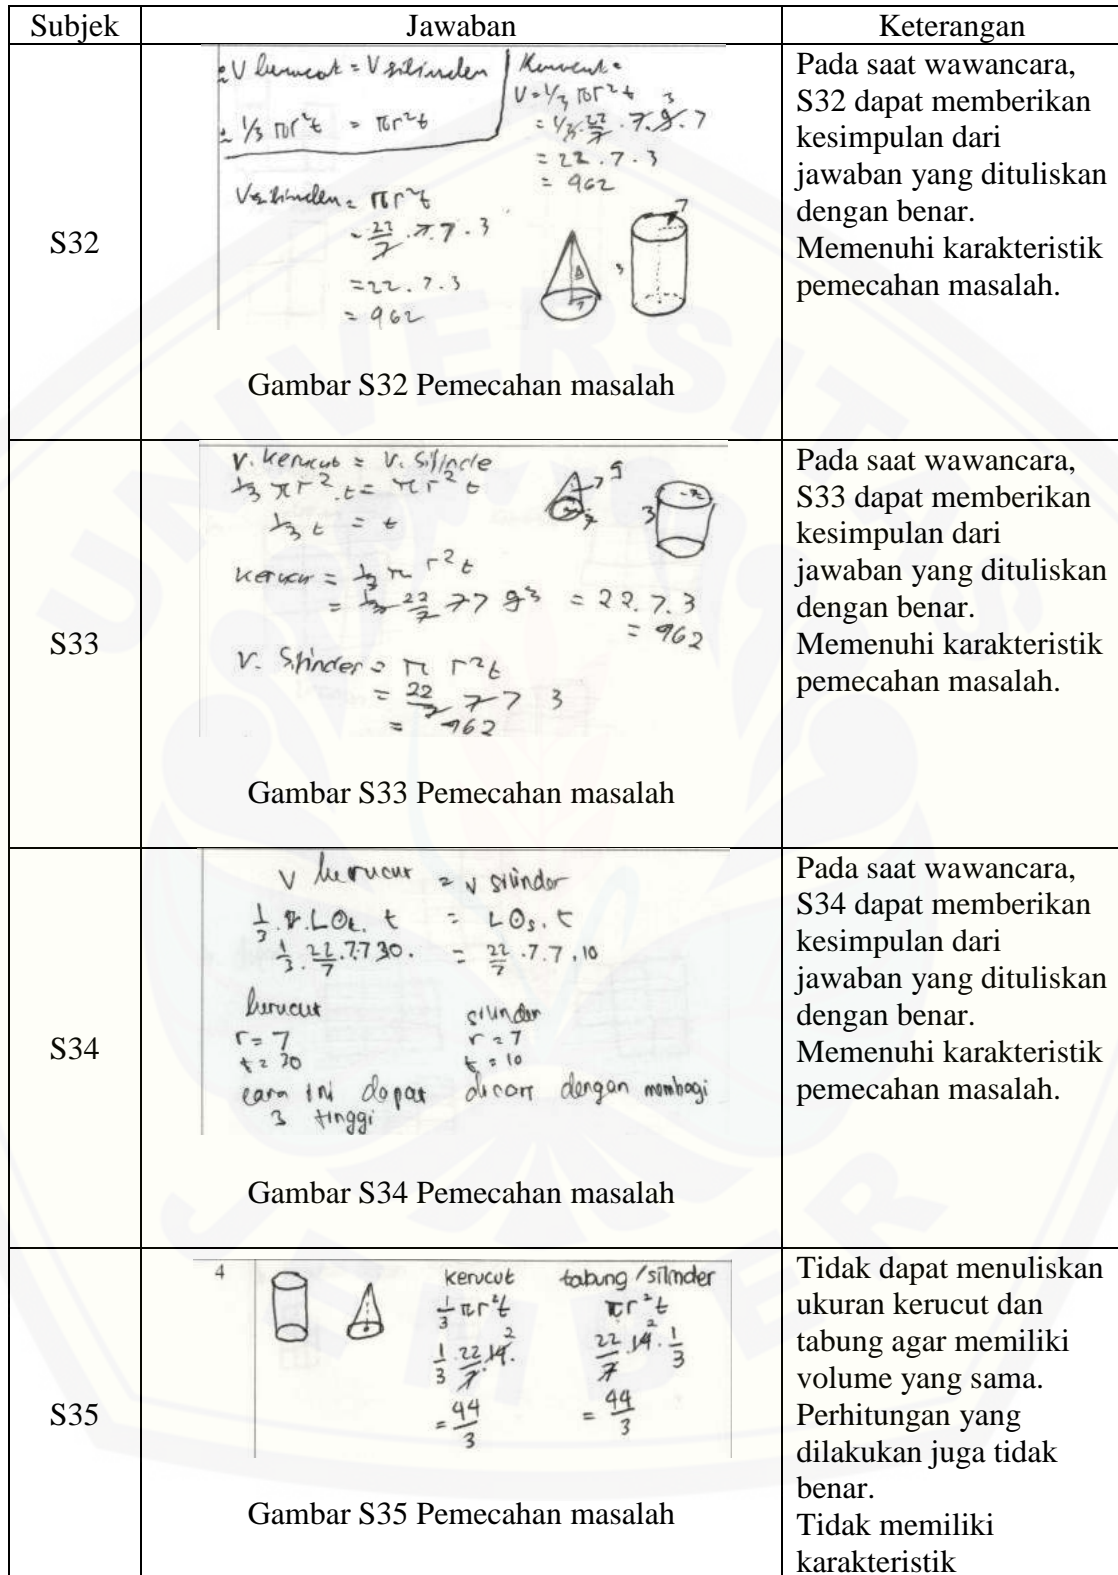 Subjek Jawaban Keterangan
S32
V kerucut = V silinder
1/3 πr²t = πr²t
V silinder = πr²t
= 22/7 . 7.7 . 3
= 22 . 7 . 3
= 962
V = 1/3 πr²t
= 1/3 . 22/7 . 7 . 9 . 7
3
= 22 . 7 . 3
= 962
7
Gambar S32 Pemecahan masalah
Pada saat wawancara,
S32 dapat memberikan
kesimpulan dari
jawaban yang dituliskan
dengan benar.
Memenuhi karakteristik
pemecahan masalah.
S33
V. Kerucut = V. Silinde
1/3 πr².t = πr²t
1/3 t = t
= 1/3 π r²t
= 1/3 22/7 7 7 9 3 = 22.7.3
= 962
V. Silinder = π r²t
= 22/7 7 7 3
= 962
7 9
3
Gambar S33 Pemecahan masalah
Pada saat wawancara,
S33 dapat memberikan
kesimpulan dari
jawaban yang dituliskan
dengan benar.
Memenuhi karakteristik
pemecahan masalah.
S34
V kerucut = V silinder
1/3 . LOt. t = LOs. t
1/3 . 22/7 .7.7 30. = 22/7 .7.7.10
kerucut silinder
r = 7 r = 7
t = 30 t = 10
cara ini dapat dicari dengan membagi
3 tinggi
Gambar S34 Pemecahan masalah
Pada saat wawancara,
S34 dapat memberikan
kesimpulan dari
jawaban yang dituliskan
dengan benar.
Memenuhi karakteristik
pemecahan masalah.
S35
4
kerucut tabung/silinder
1/3 πr²t πr²t
1/3 . 22/7 . 14. 2 22/7 . 14 2 . 1/3
= 44/3 = 44/3
Gambar S35 Pemecahan masalah
Tidak dapat menuliskan
ukuran kerucut dan
tabung agar memiliki
volume yang sama.
Perhitungan yang
dilakukan juga tidak
benar.
Tidak memiliki
karakteristik
UNIVERSITAS
JEMBER